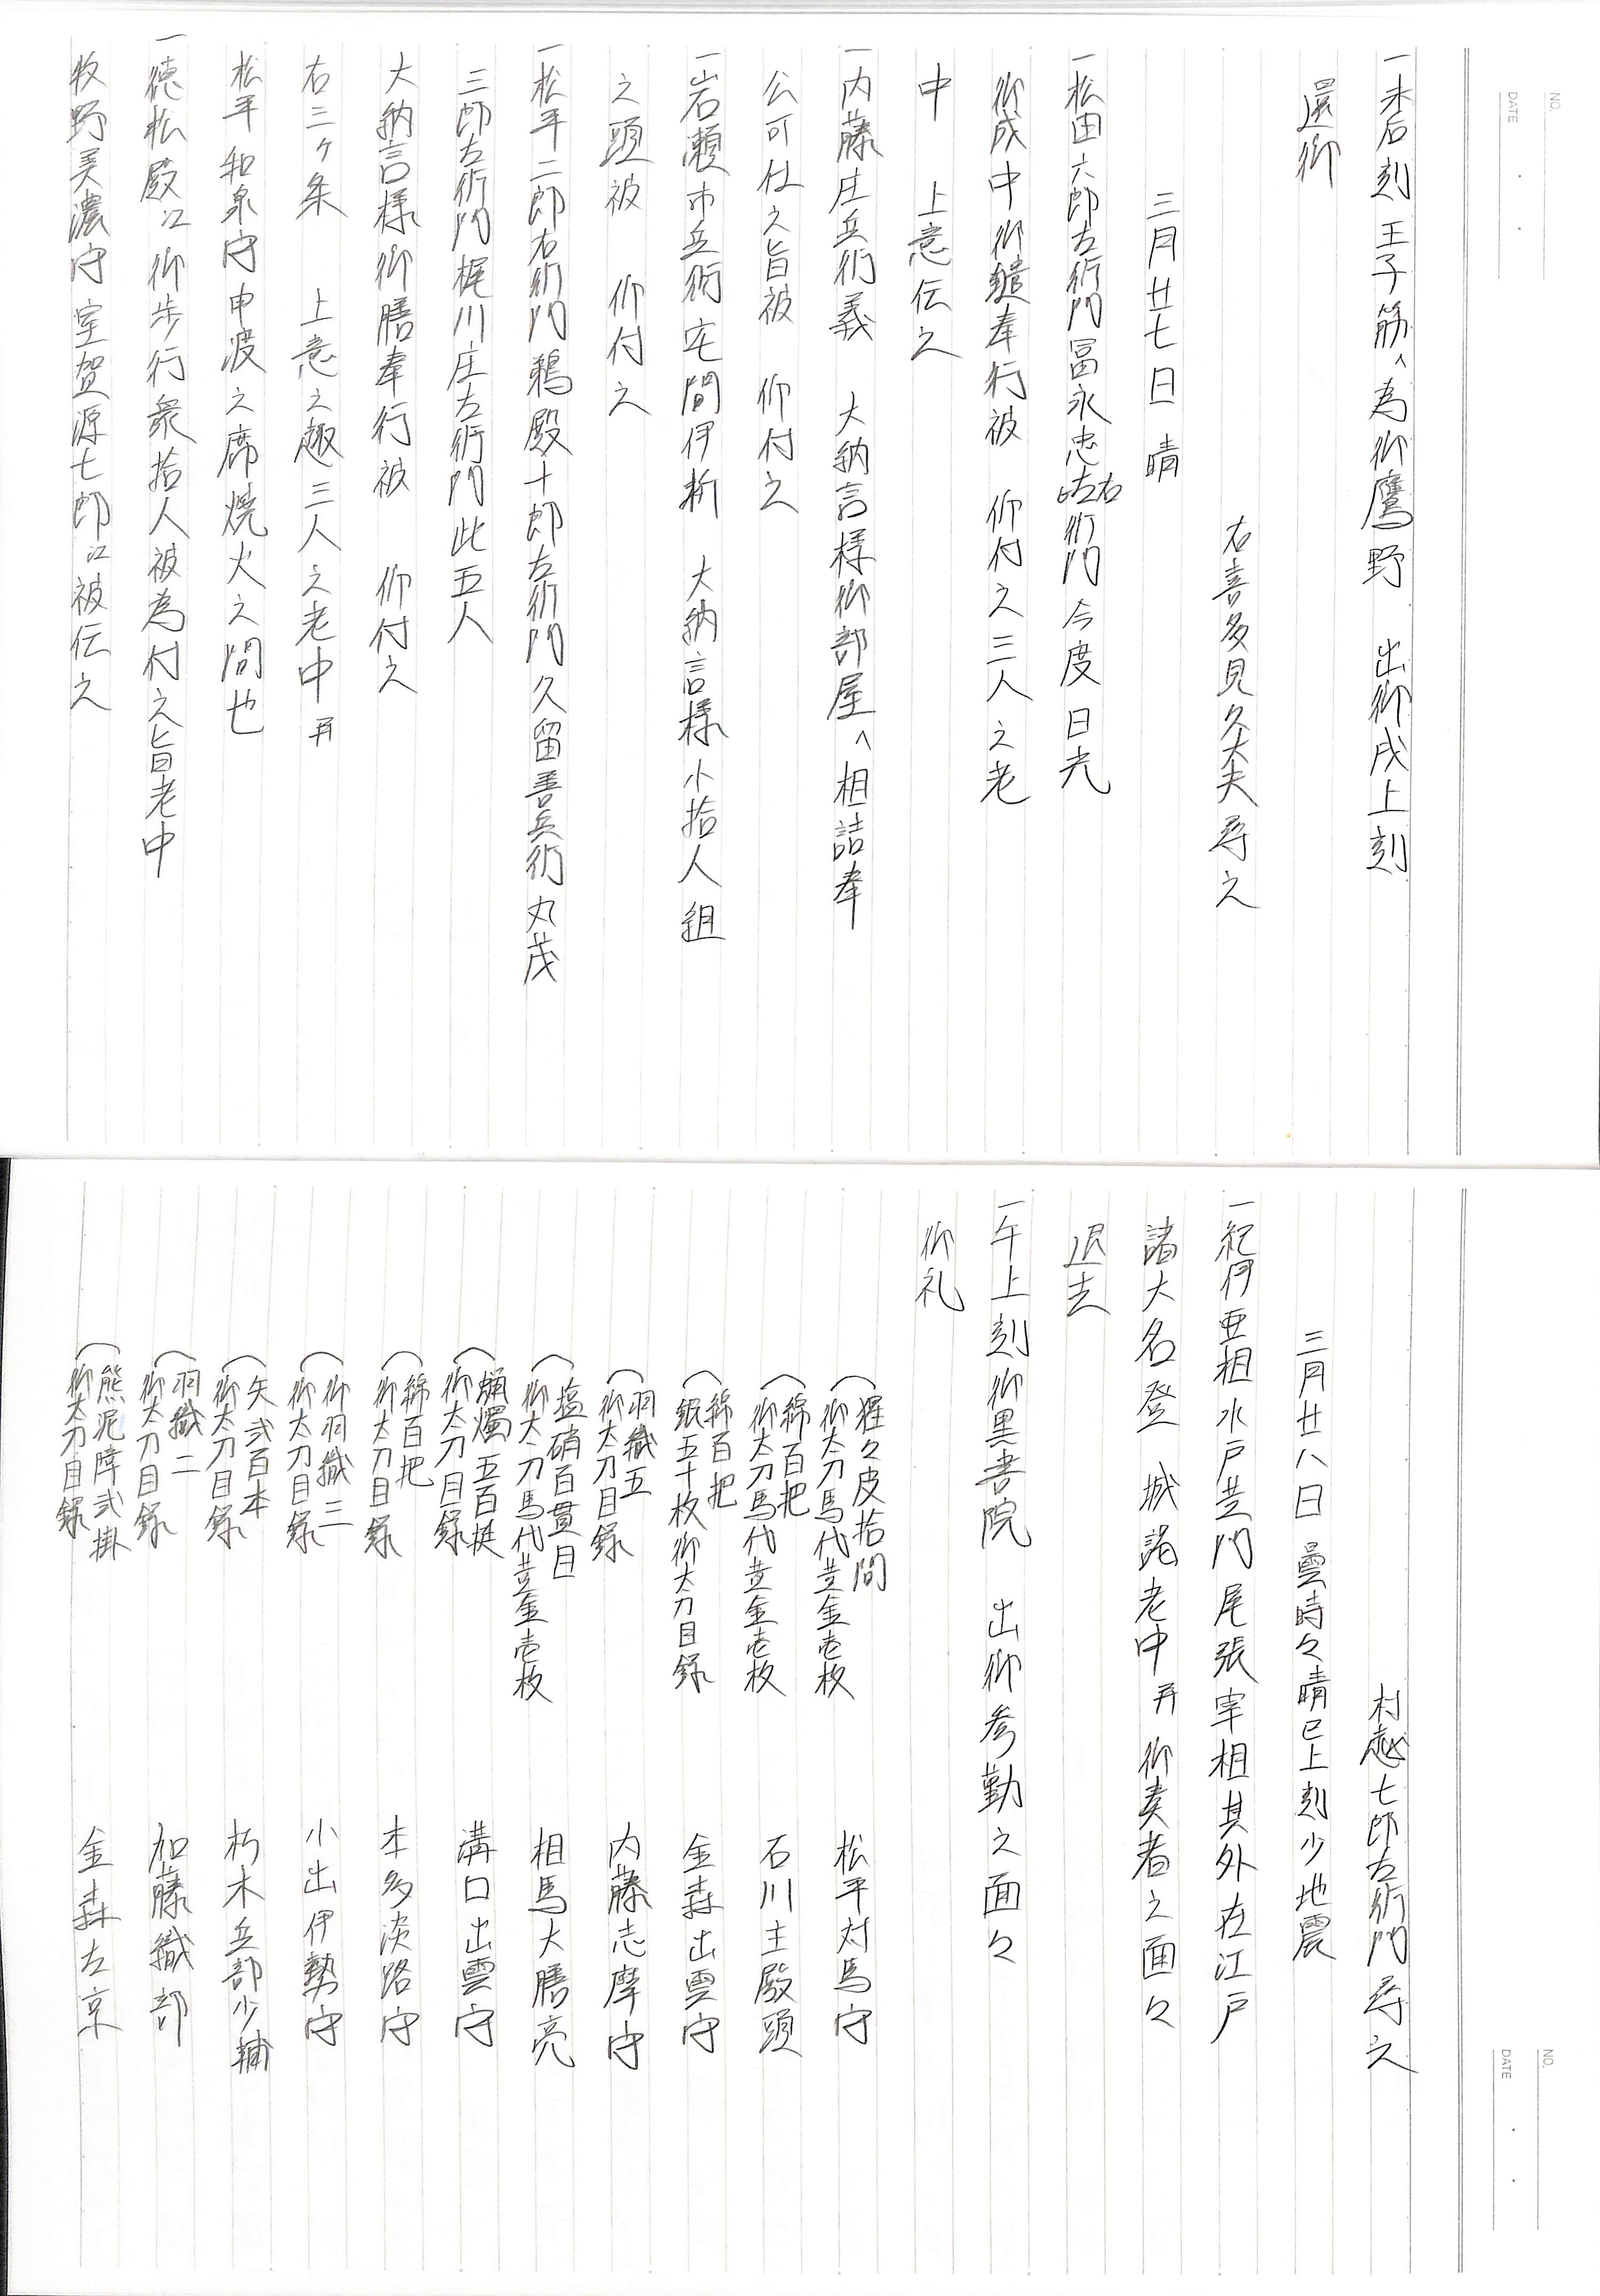 NO.
DATE
一未后刻王子筋へ為御鷹野 出御戌上刻
還御
右喜多見久大夫尋之
三月廿七日 晴
一松田六郎左衛門冨永忠左右衛門今度日光
御成中御鑓奉行被 仰付之三人之老
中 上意伝之
一内藤庄兵衛義 大納言様御部屋へ相詰奉
公可仕之旨被 仰付之
一岩瀬市兵衛宅間伊折 大納言様小拾人組
之頭被 仰付之
一松平二郎右衛門鵜殿十郎左衛門久留善兵衛丸茂
三郎左衛門梶川庄左衛門此五人
大納言様御膳奉行被 仰付之
右三ヶ条 上意之趣三人之老中并
松平和泉守申渡之席焼火之間也
一徳松殿江御歩行衆拾人被為付之旨老中
牧野美濃守室賀源七郎江被伝之
NO.
DATE
村越七郎左衛門尋之
三月廿八日 曇時々晴巳上刻少地震
一紀伊亜相水戸黄門尾張宰相其外在江戸
諸大名登 城謁老中并御奏者之面々
退去
一午上刻御黒書院 出御参勤之面々
御礼
猩々皮拾間
御太刀馬代黄金壱枚 松平対馬守
綿百把
御太刀馬代黄金壱枚 石川主殿頭
綿百把
銀五十枚御太刀目録 金森出雲守
羽織五
御太刀目録 内藤志摩守
塩硝百貫目
御太刀馬代黄金壱枚 相馬大膳亮
蝋燭五百挺
御太刀目録 溝口出雲守
綿百把
御太刀目録 本多淡路守
御羽織三
御太刀目録 小出伊勢守
矢弐百本
御太刀目録 朽木兵部少輔
羽織二
御太刀目録 加藤織部
熊泥障弐掛
御太刀目録 金森左京